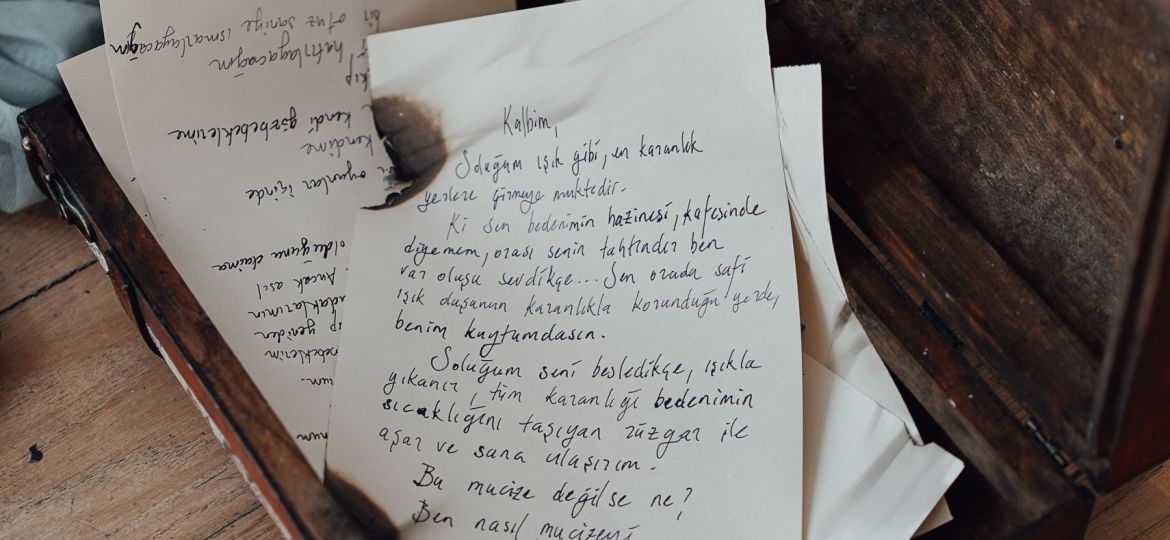 Kalbim,
Soluğum ışık gibi, en karanlık
yerlere girmeye muktedir.
Ki sen bedenimin hazinesi, kafesinde
diyemem, orası senin tahtındır ben
var oluşu sevdikçe... Sen orada safi
ışık duşunun karanlıkla korunduğu yerde,
benim kuytumdasın.
Soluğum seni besledikçe, ışıkla
yıkanır, tüm karanlığı bedenimin
sıcaklığını taşıyan rüzgar ile
aşar ve sana ulaşırım.
Bu mucize değilse ne?
Ben nasıl mucizeyi
bir
otuz saniye ısmarlayacağım
hatırlayacağım
kendi gözbebeklerime
kendime
oyunlar içinde
olduğunu daima
Ancak asıl
yeniden